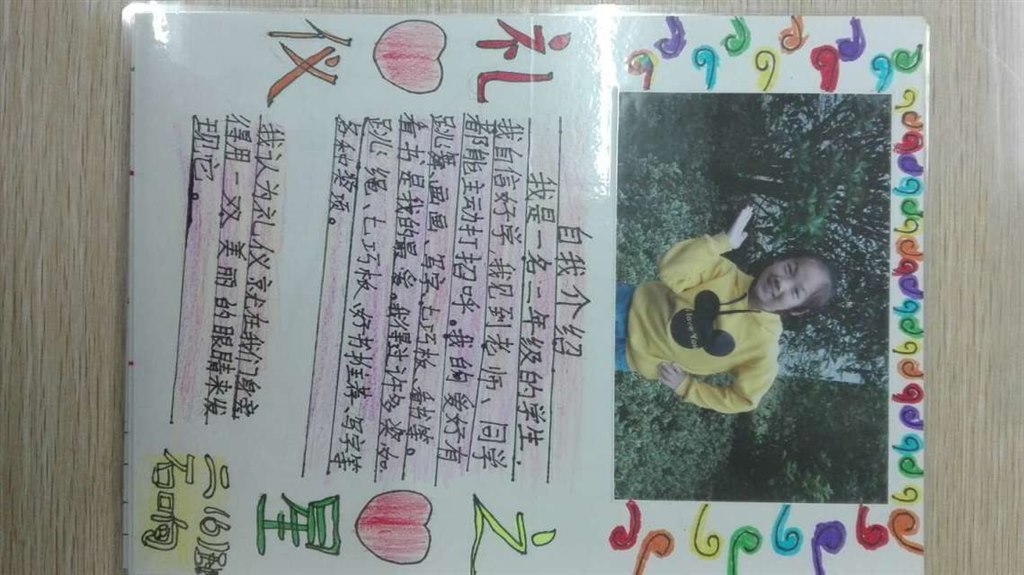 礼
仪
自我介绍
我是一名二年级的学生.
我自信好学,我见到老师、同学
都能主动打招呼。我的爱好有
跳舞、画画、写字、七巧板、看书等。
看书是我的最爱。我得过许多奖如
跳绳、七巧板、好书推荐、写字等
各种奖项。
我认为礼仪就在我们身旁
得用一双美丽的眼睛来发
现它。
之
星